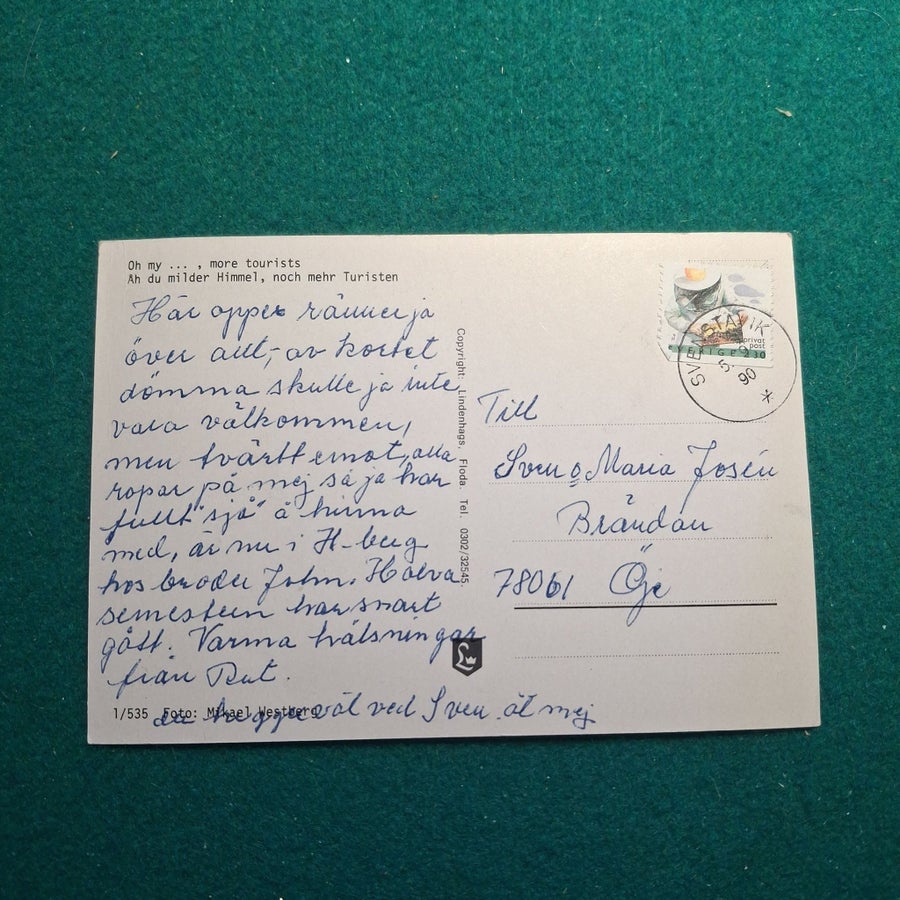 Oh my ... , more tourists
Ah du milder Himmel, noch mehr Turisten
Här oppe ränner ja
över allt, av kortet
dömma skulle ja inte
vara välkommen,
men tvärtt emot, alla
ropar på mej så ja har
fullt "sjå" å hinna
med, är nu i H-berg
hos broder John. Halva
semestern har snart
gått. Varma hälsningar
från Rut.
1/535 Foto: Mikael Westberg
du hugger väl ved Sven åt mej
Copyright: Lindenhags, Floda. Tel. 0302/32545.
L
privat
post
SVERIGE 2.30
SVENSTAVIK
5.9
90
Till
Sven o Maria Josén
Brändan
78061 Öje